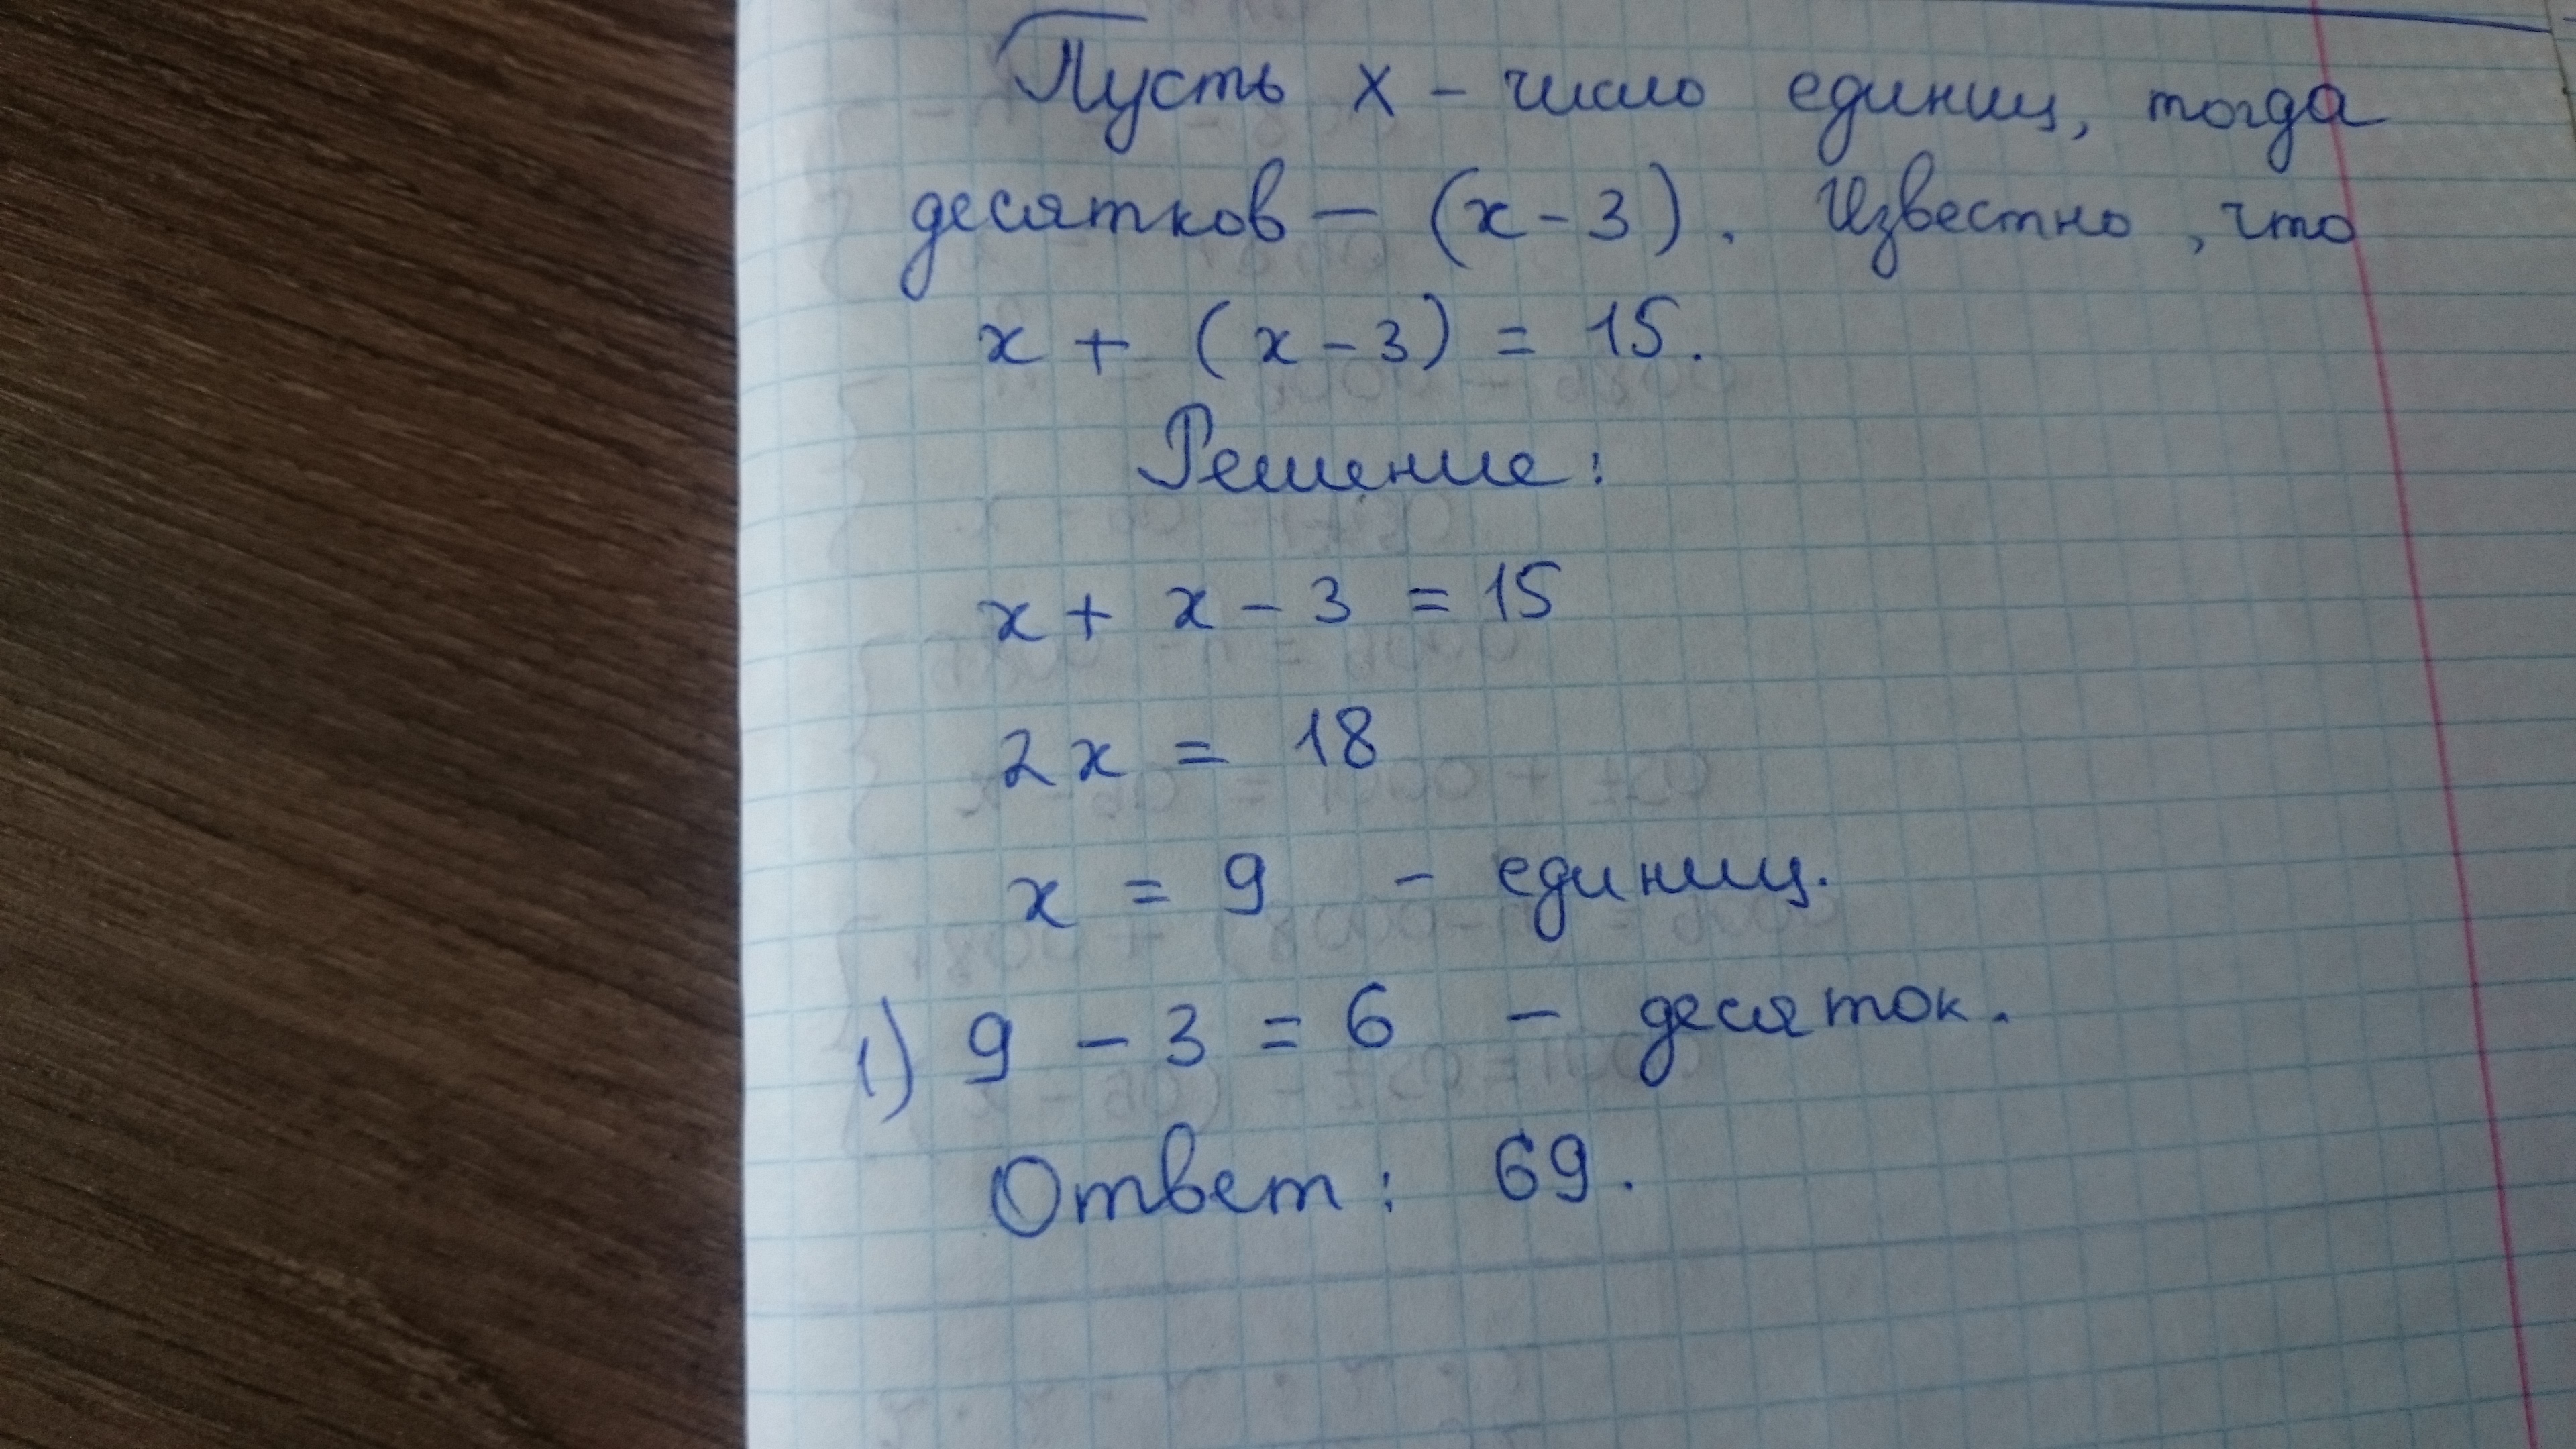 Пусть x - число единиц, тогда
десятков — (x - 3). Известно, что
x + (x - 3) = 15.
Решение:
x + x - 3 = 15
2x = 18
x = 9 - единиц.
1) 9 - 3 = 6 - десяток.
Ответ: 69.